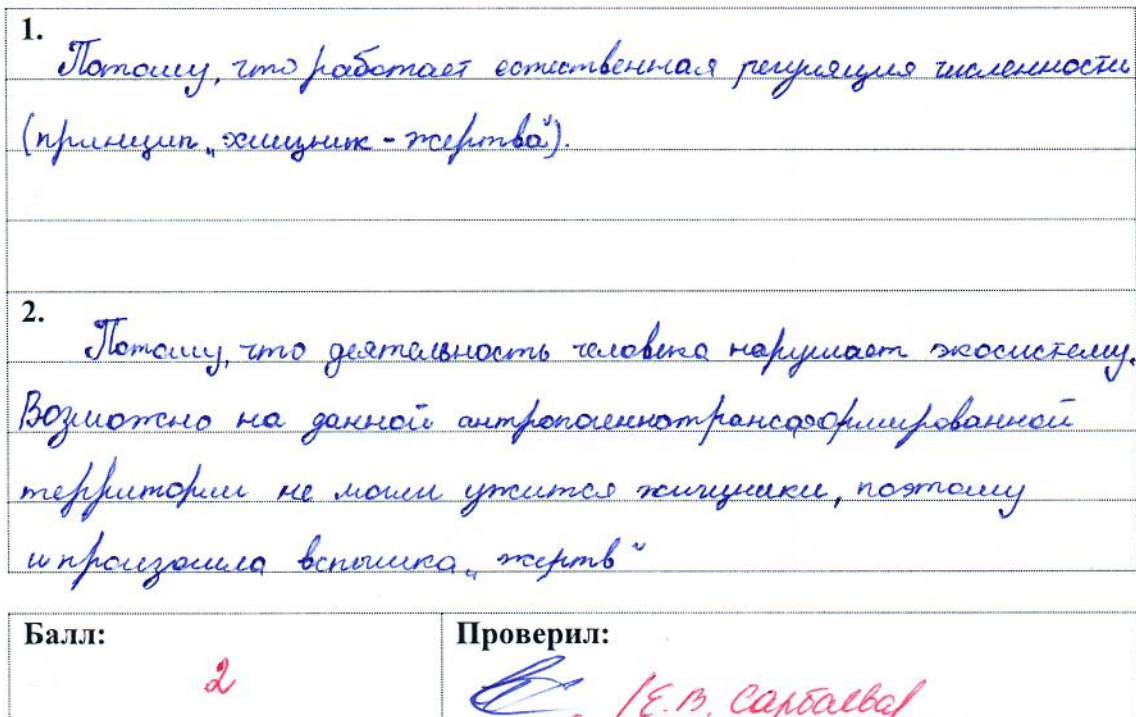 1.
Потому, что работает естественная регуляция численности
(принцип „хищник - жертва").
2.
Потому, что деятельность человека нарушает экосистему.
Возможно на данной антропогеннотрансформированной
территории не могли ужится хищники, поэтому
и произошла вспышка „жертв"
Балл:
Проверил:
2
/Е.В. Сарбаева/